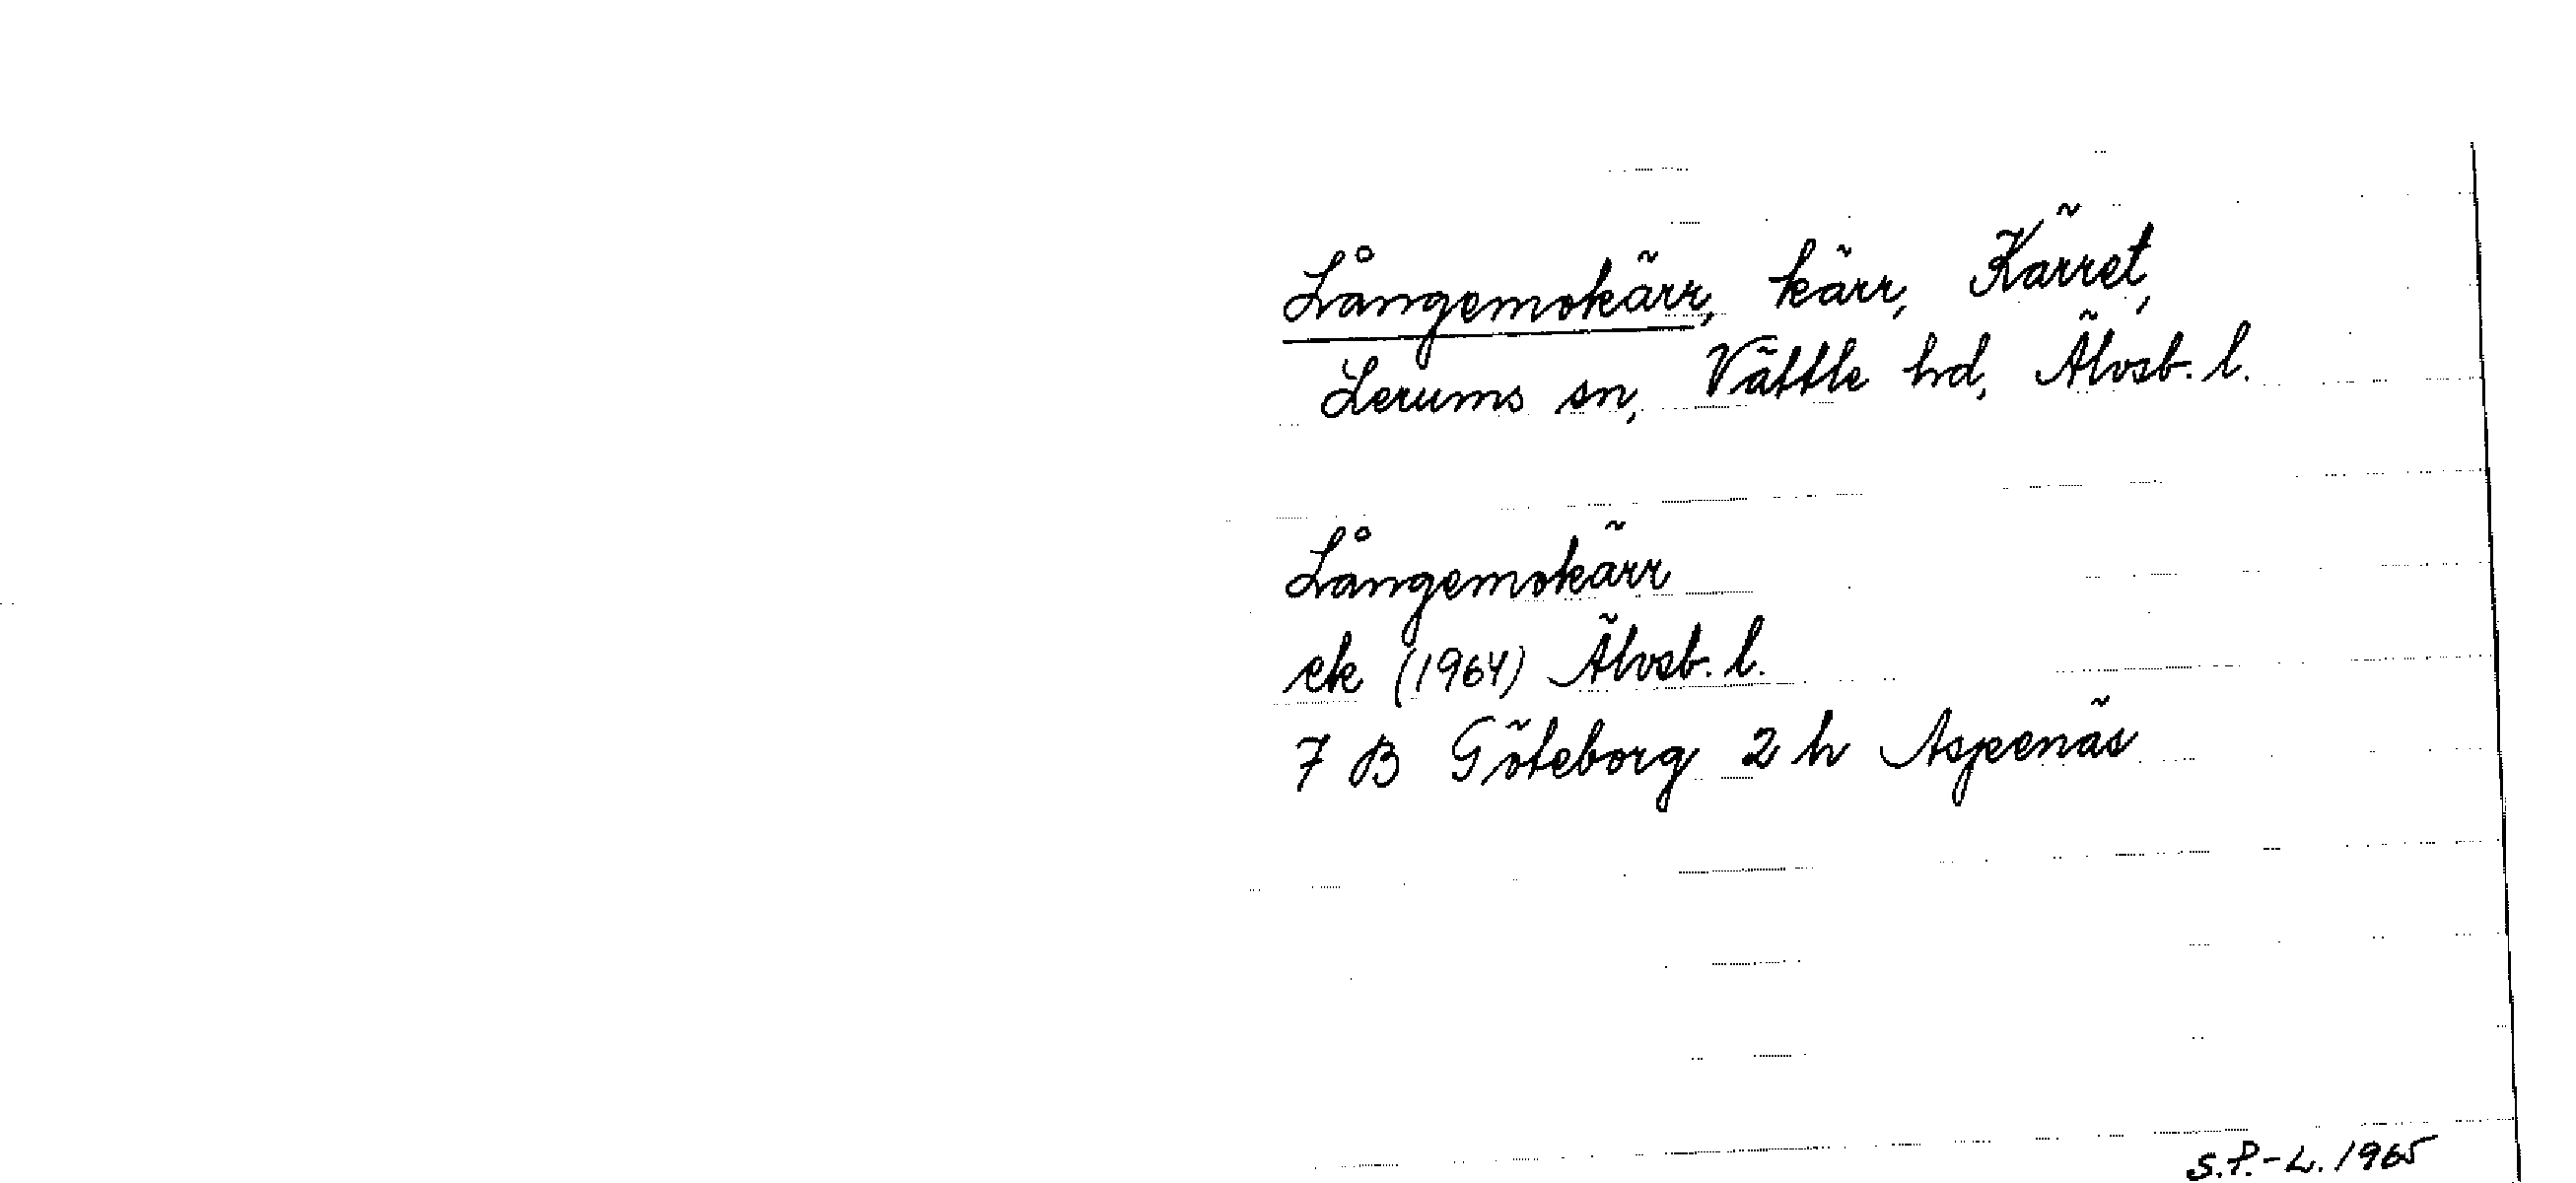 Långemokärr, kärr, Kärret,
Lerums sn, Vättle hd, Älvsb. l.
Långemokärr
ek (1964) Älvsb. l.
7 B Göteborg 2 h Aspenäs
S.P.-L. 1965